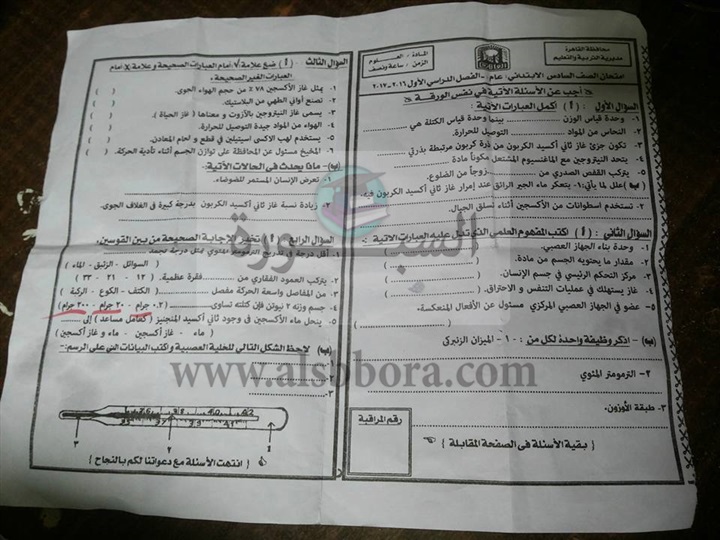 محافظة القاهرة
مديرية التربية والتعليم
المادة : العــــلوم
الزمن : ساعة ونصف
امتحان الصف السادس الابتدائى / عام - الفصل الدراسي الأول ٢٠١٦-٢٠١٧
أجب عن الأسئلة الآتية في نفس الورقة
السؤال الأول : ( أ ) أكمل العبارات الآتية :
١- وحدة قياس الوزن .......... بينما وحدة قياس الكتلة هي ..........
٢- النحاس من المواد .......... التوصيل للحرارة.
٣- تكون جزئ غاز ثاني أكسيد الكربون من ذرة كربون مرتبطة بذرتي ..........
٤- يتحد النيتروجين مع الماغنسيوم المشتعل مكوناً مادة ..........
٥- يتركب القفص الصدري من .......... زوجاً من الضلوع.
(ب) علل لما يأتي: ١- يتعكر ماء الجير الرائق عند إمرار غاز ثاني أكسيد الكربون فيه.
٢- تستخدم اسطوانات من الأكسجين أثناء تسلق الجبال.
السؤال الثاني : ( أ ) اكتب المفهوم العلمي الذي تدل عليه العبارات الآتية :
١- وحدة بناء الجهاز العصبي.
٢- مقدار ما يحتويه الجسم من مادة.
٣- مركز التحكم الرئيسي في جسم الإنسان.
٤- غاز يستهلك في عمليات التنفس و الاحتراق.
٥- عضو في الجهاز العصبي المركزي مسئول عن الأفعال المنعكسة.
(ب) اذكر وظيفة واحدة لكل من : ١- الميزان الزنبركي
٢- الترمومتر المئوي
٣- طبقة الأوزون.
رقم المراقبة
{ بقية الأسئلة فى الصفحة المقابلة }
السؤال الثالث : ( أ ) ضع علامة √ أمام العبارات الصحيحة وعلامة × أمام
العبارات الغير الصحيحة.
١- يمثل غاز الأكسجين ٧٨ ٪ من حجم الهواء الجوى. ( )
٢- تصنع أواني الطهي من البلاستيك. ( )
٣- يسمى غاز النيتروجين بالأزوت و معناها ( غاز الحياة ). ( )
٤- الهواء من المواد جيدة التوصيل للحرارة. ( )
٥- يستخدم لهب الاكسى أسيتيلين في قطع و لحام المعادن. ( )
٦- المخيخ مسئول عن المحافظة على توازن الجسم أثناء تأدية الحركة. ( )
(ب) - ماذا يحدث في الحالات الآتية :
١- تعرض الإنسان المستمر للضوضاء.
٢- زيادة نسبة غاز ثاني أكسيد الكربون بدرجة كبيرة فى الغلاف الجوى.
السؤال الرابع ( أ ) تخير الإجابة الصحيحة من بين القوسين.
١- أقل درجة في تدريج الترمومتر المئوي تمثل درجة تجمد ..........
( السوائل - الزئبق - الماء )
٢- يتركب العمود الفقاري من .......... فقرة عظمية. ( ١٢ - ٢١ - ٣٣ )
٣- من المفاصل واسعة الحركة مفصل .......... ( الكتف - الكوع - الركبة )
٤- جسم وزنه ٢ نيوتن فإن كتلته تساوى .... ( ٠.٢ جرام - ٢٠ جرام - ٢٠٠ جرام )
٥- ينحل ماء الأكسجين في وجود ثاني أكسيد المنجنيز ( كعامل مساعد ) إلى ....
( ماء - غاز أكسجين - ماء و غاز أكسجين )
(ب) لاحظ الشكل التالي للخلية العصبية واكتب البيانات التي على الرسم:-
١-
٢-
٣-
١
٢
٣
{ انتهت الأسئلة مع دعواتنا لكم بالنجاح }
السبورة
www.alsbbora.com